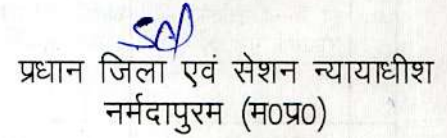 प्रधान जिला एवं सेशन न्यायाधीश
नर्मदापुरम (म०प्र०)